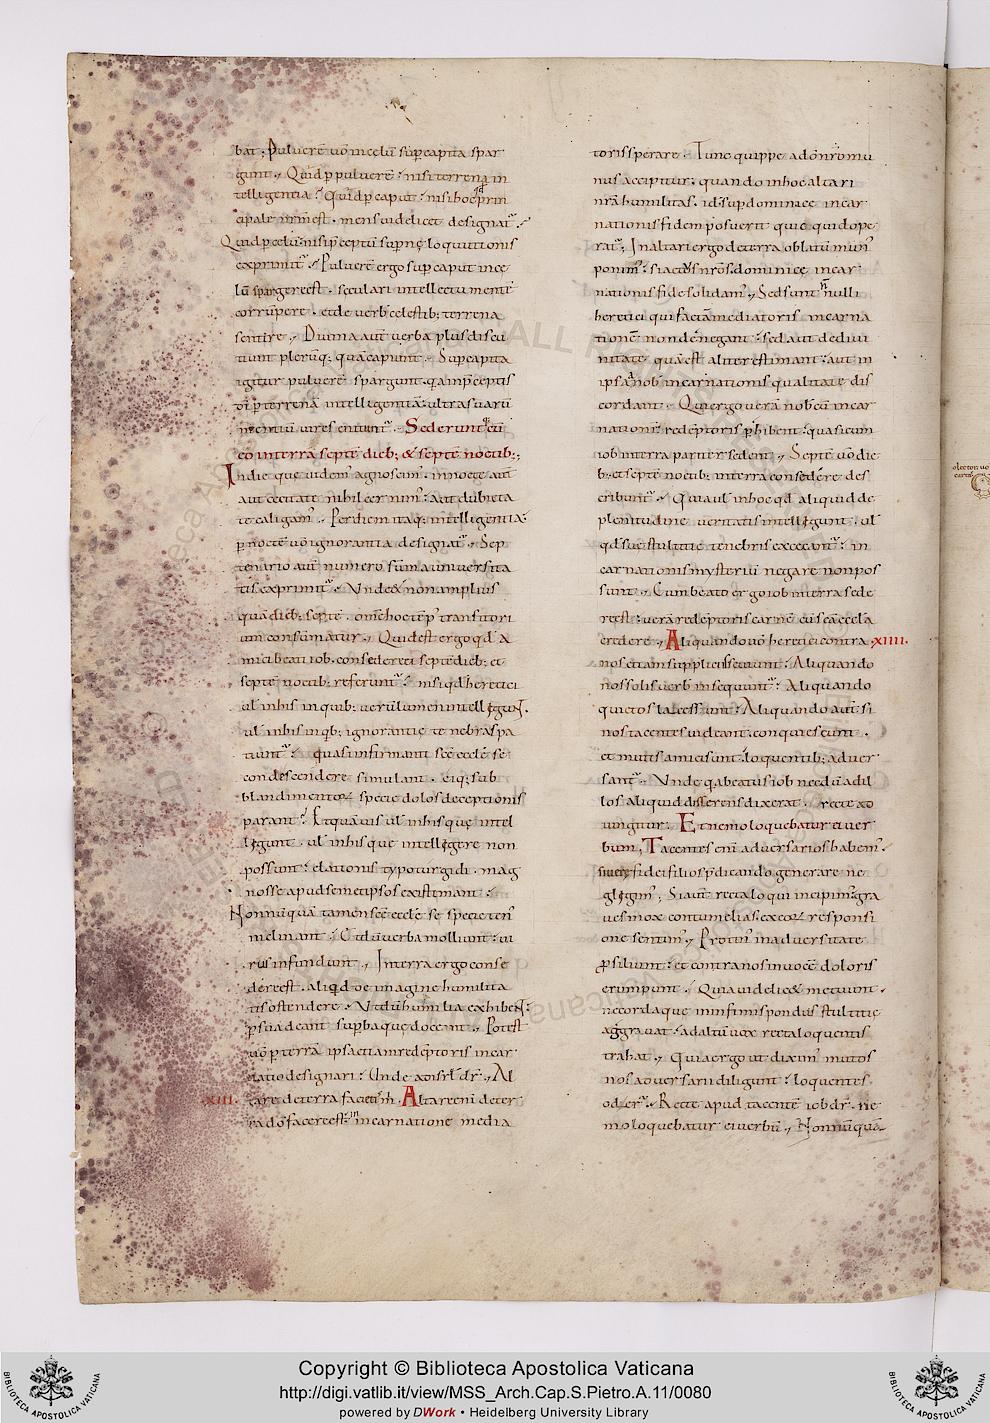 bat; Puluerē uo incelū sup capita spar
gunt; Quid p puluerē nisi terrena in
telligentia? Quid p caput nisi hoc qđ prin
cipale
mens uidelicet designat?
Quid p celū nisi p ceptū supne locutionis
exprimit? Puluerē ergo sup caput in ce
lū spargere est. seculari intellectu mente
corrūpere. et de uerb celestib; terrena
sentire. Diuina aut uerba plus discu
tiunt plerūq; quā capiunt. Sup capita
igitur puluerē spargunt. qa in p ceptis
di p terrenā intelligentiā ultra suarū
mentiū uires enitunt. Sederunt cū
eo in terra septē dieb; & septē noctib;;
In die que uidem agnoscim. in nocte aut
aut cecitate nihil cernim. aut dubieta
te caligam. Per diem itaq; intelligentia.
p noctē uō ignorantia designat. Sep
tenario aut numero sūma uniuersita
tis exprimit. Unde & non amplius
quā dieb; septē. omē hoc tēp transitori
um consūmatur. Quid est ergo qđ a
mici beati iob. consedere septē dieb; et
septē noctib; referunt? nisi qđ heretici
ul in his in quib; uerū lumen intellegunt.
ul in his in qb; ignorantie tenebras pa
tiunt. quasi infirmanti scē ecclē se
condescendere simulant. eiq; sub
blandimentor specie dolos deceptionis
parant? Et quāuis ul in his que intel
legunt. ul in his que intellegere non
possunt. elationis typo turgidi. mag
nos se apud semetipsos existimant.
Nonnūquā tamen scē ecclē se specie ten
inclinant. Et dū uerba mollunt. ui
rus infundunt. In terra ergo conse
dere est. aliqđ de imagine humilita
tis ostendere. Ut dū humilia exhibent.
p suadeant supba que docent. Potest
uō p terrā ipsa etiam redēptoris incar
natio designari. Unde ad isrl dr. Al
XIII. tare de terra facietis m. Altare eni de ter
ra dō facere est. in incarnatione media
toris sperare. Tunc quippe a dō nro mu
nus accipitur. quando in hoc altari
nrā humilitas. id sup dominice incar
nationis fidem posuerit quicquid ope
rat. In altari ergo de terra oblatū mun
ponim. si actus nros dominice incar
nationis fide solidam. Sed sunt n nulli
heretici qui factā mediatoris incarna
tionē non denegant. sed aut de diui
nitate quā est aliter estimant. aut in
ipsa nob incarnationis qualitate dis
cordant. Qui ergo uerā nobcū incar
nationē redēptoris phibent. quasi cum
iob in terra pariter sedent. Septē uō die
b; et septē noctib; in terra consedere des
cribunt. Quia ul in hoc qđ aliquid de
plenitudine ueritatis intellegunt. ul
qđ sue stultitie tenebris excecant. in
carnationis mysteriū negare non pos
sunt. Cum beato ergo iob in terra sede
re est. uerā redēptoris carnē cū scā ecclā
credere. Aliquando uō heretici contra XIIII.
nos etiam suppliciis seuiunt. Aliquando
nos solis uerb insequunt. Aliquando
quietos lacessunt. Aliquando aut si
nos tacentes uideant. conquiescunt.
et mutis amici sunt. loquentib; aduer
sant. Unde qa beatus iob necdū ad il
los aliquid disserens dixerat. recte ad
iungitur. Et nemo loquebatur ei uer
bum; Tacentes eni aduersarios habem.
si uere fidei filios p dicando generare ne
glegim; Si aut recta loqui incipim. gra
ues mox contumelias ex eor responsi
one sentim. Protin in aduersitate
psiliunt. et contra nos in uocē doloris
erumpunt. Quia uidelic& metuunt.
ne corda que in infimis pondus stultitie
aggrauat. ad altū uox recta loquentis
trahat. Quia ergo ut dixim mutos
nos aduersarii diligunt. loquentes
oder. Recte apud tacentē iob dr. ne
mo loquebatur ei uerbū. Nonnūquā
ALL RIGHTS RESERVED
Copyright © Biblioteca Apostolica Vaticana
http://digi.vatlib.it/view/MSS_Arch.Cap.S.Pietro.A.11/0080
powered by DWork • Heidelberg University Library
BIBLIOTECA APOSTOLICA VATICANA
BIBLIOTECA APOSTOLICA VATICANA